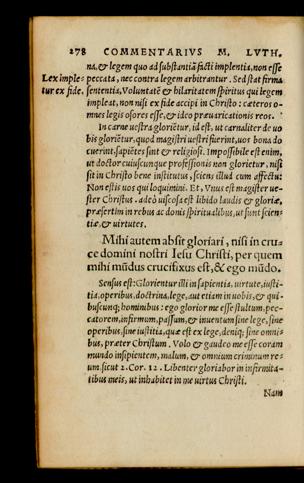 278 COMMENTARIVS M. LVTH.
na, & legem quo ad substantiã facti implentia, non esse
Lex imple- peccata, nec contra legem arbitrantur. Sed stat firma
tur ex fide. sententia, Voluntatẽ & hilaritatem spiritus qui legem
impleat, non nisi ex fide accipi in Christo: cæteros o-
mnes legis osores esse, & ideo præuaricationis reos.
In carne uestra gloriẽtur, id est, ut carnaliter de uo
bis gloriẽtur, quod magistri uestri fuerint, uos bona do
cuerint, sapiẽtes sint & religiosi. Impossibile est enim,
ut doctor cuiuscunque professionis non glorietur, nisi
sit in Christo bene institutus, sciens illud cum affectu:
Non estis uos qui loquimini. Et, Vnus est magister ue-
ster Christus. adeò uiscosa est libido laudis & gloriæ,
præsertim in rebus ac donis spiritualibus, ut sunt scien-
tiæ, & uirtutes.
Mihi autem absit gloriari, nisi in cru-
ce domini nostri Iesu Christi, per quem
mihi mũdus crucifixus est, & ego mũdo.
Sensus est: Glorientur illi in sapientia, uirtute, iusti-
tia, operibus, doctrina, lege, aut etiam in uobis, & qui-
buscunq; hominibus: ego glorior me esse stultum, pec-
catorem, infirmum, passum, & inuentum sine lege, sine
operibus, sine iustitia, quæ est ex lege, deniq; sine omni-
bus, præter Christum. Volo & gaudeo me esse coram
mundo insipientem, malum, & omnium criminum re-
um. sicut 2. Cor. 12. Libenter gloriabor in infirmita-
tibus meis, ut inhabitet in me uirtus Christi.
Nam